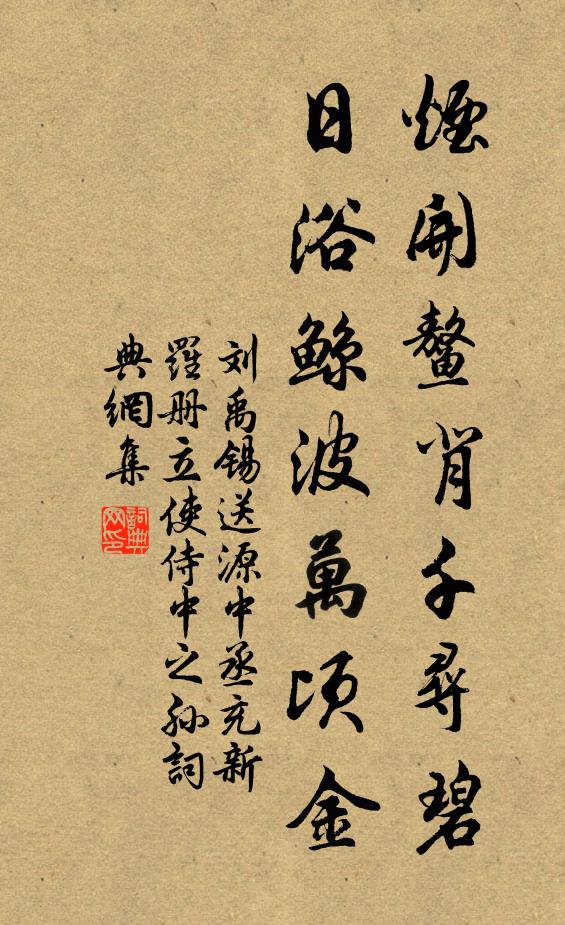 煙開鼇背千尋碧
日浴鯨波萬頃金
刘禹锡送源中丞充新
羅册立使侍中之孙詞
典網集
詞典网印